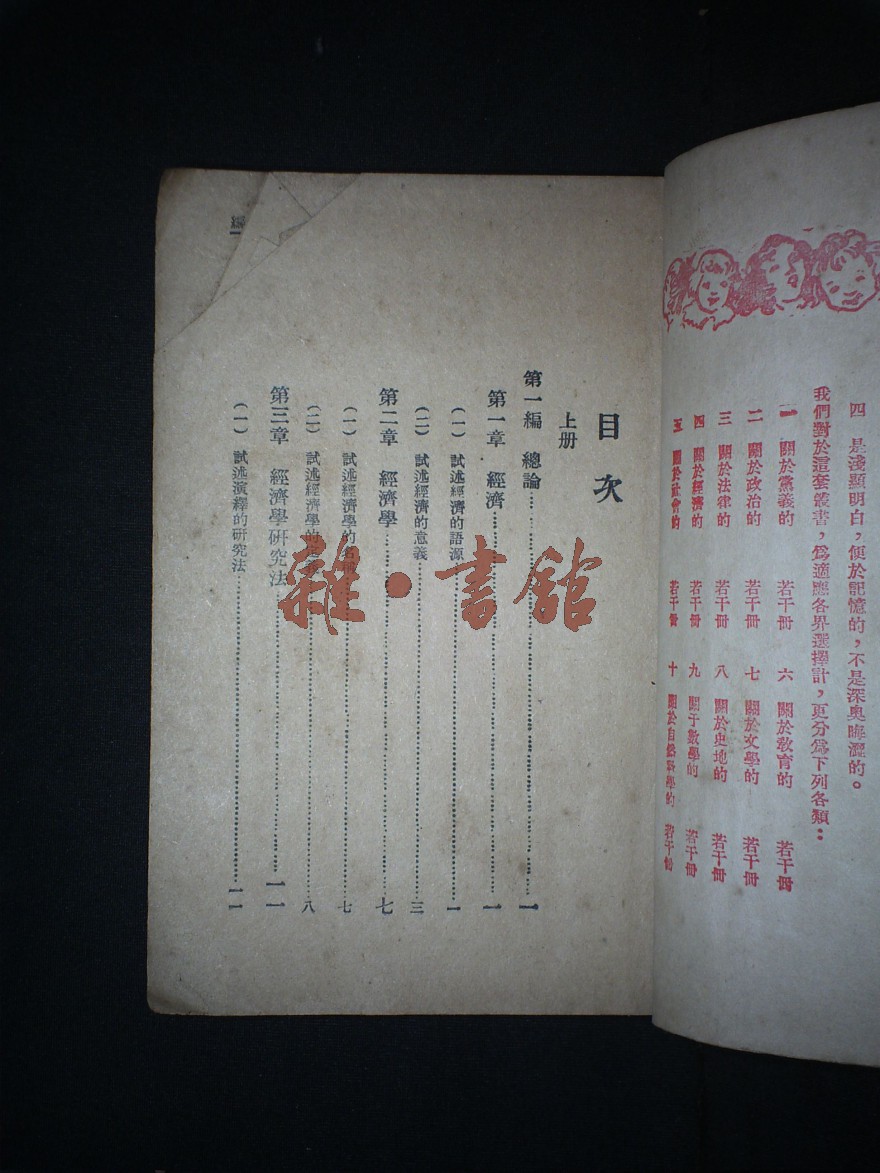 四　是淺顯明白，便於記憶的，不是深奥晦澀的。
我們對於這套叢書，爲適應各界選擇計，更分爲下列各類：
一　關於黨義的　若干冊　六　關於敎育的　若干冊
二　關於政治的　若干冊　七　關於文學的　若干冊
三　關於法律的　若干冊　八　關於史地的　若干冊
四　關於經濟的　若干冊　九　關于數學的　若干冊
五　關於社會的　若干冊　十　關於自然科學的　若干冊
目次
上册
第一編　總論……一
第一章　經濟……一
（一）試述經濟的語源……一
（二）試述經濟的意義……三
第二章　經濟學……七
（一）試述經濟學的……七
（二）試述經濟學的……八
第三章　經濟學研究法……一一
（一）試述演繹的研究法……一一
編
雜·書館